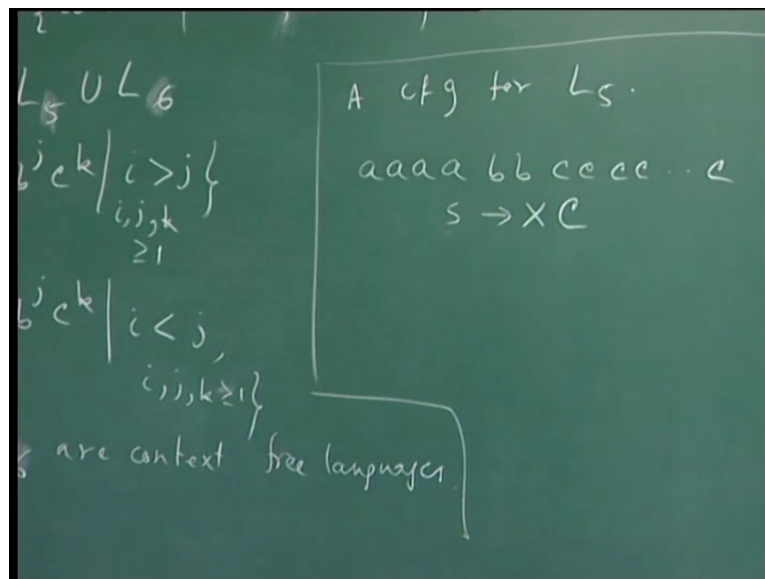 L₅ ∪ L₆
b^j c^k | i > j }
i, j, k
≥ 1
b^j c^k | i < j,
i, j, k ≥ 1 }
are context free languages.
A cfg for L₅.
a a a a b b c c c c .. c
S → X C